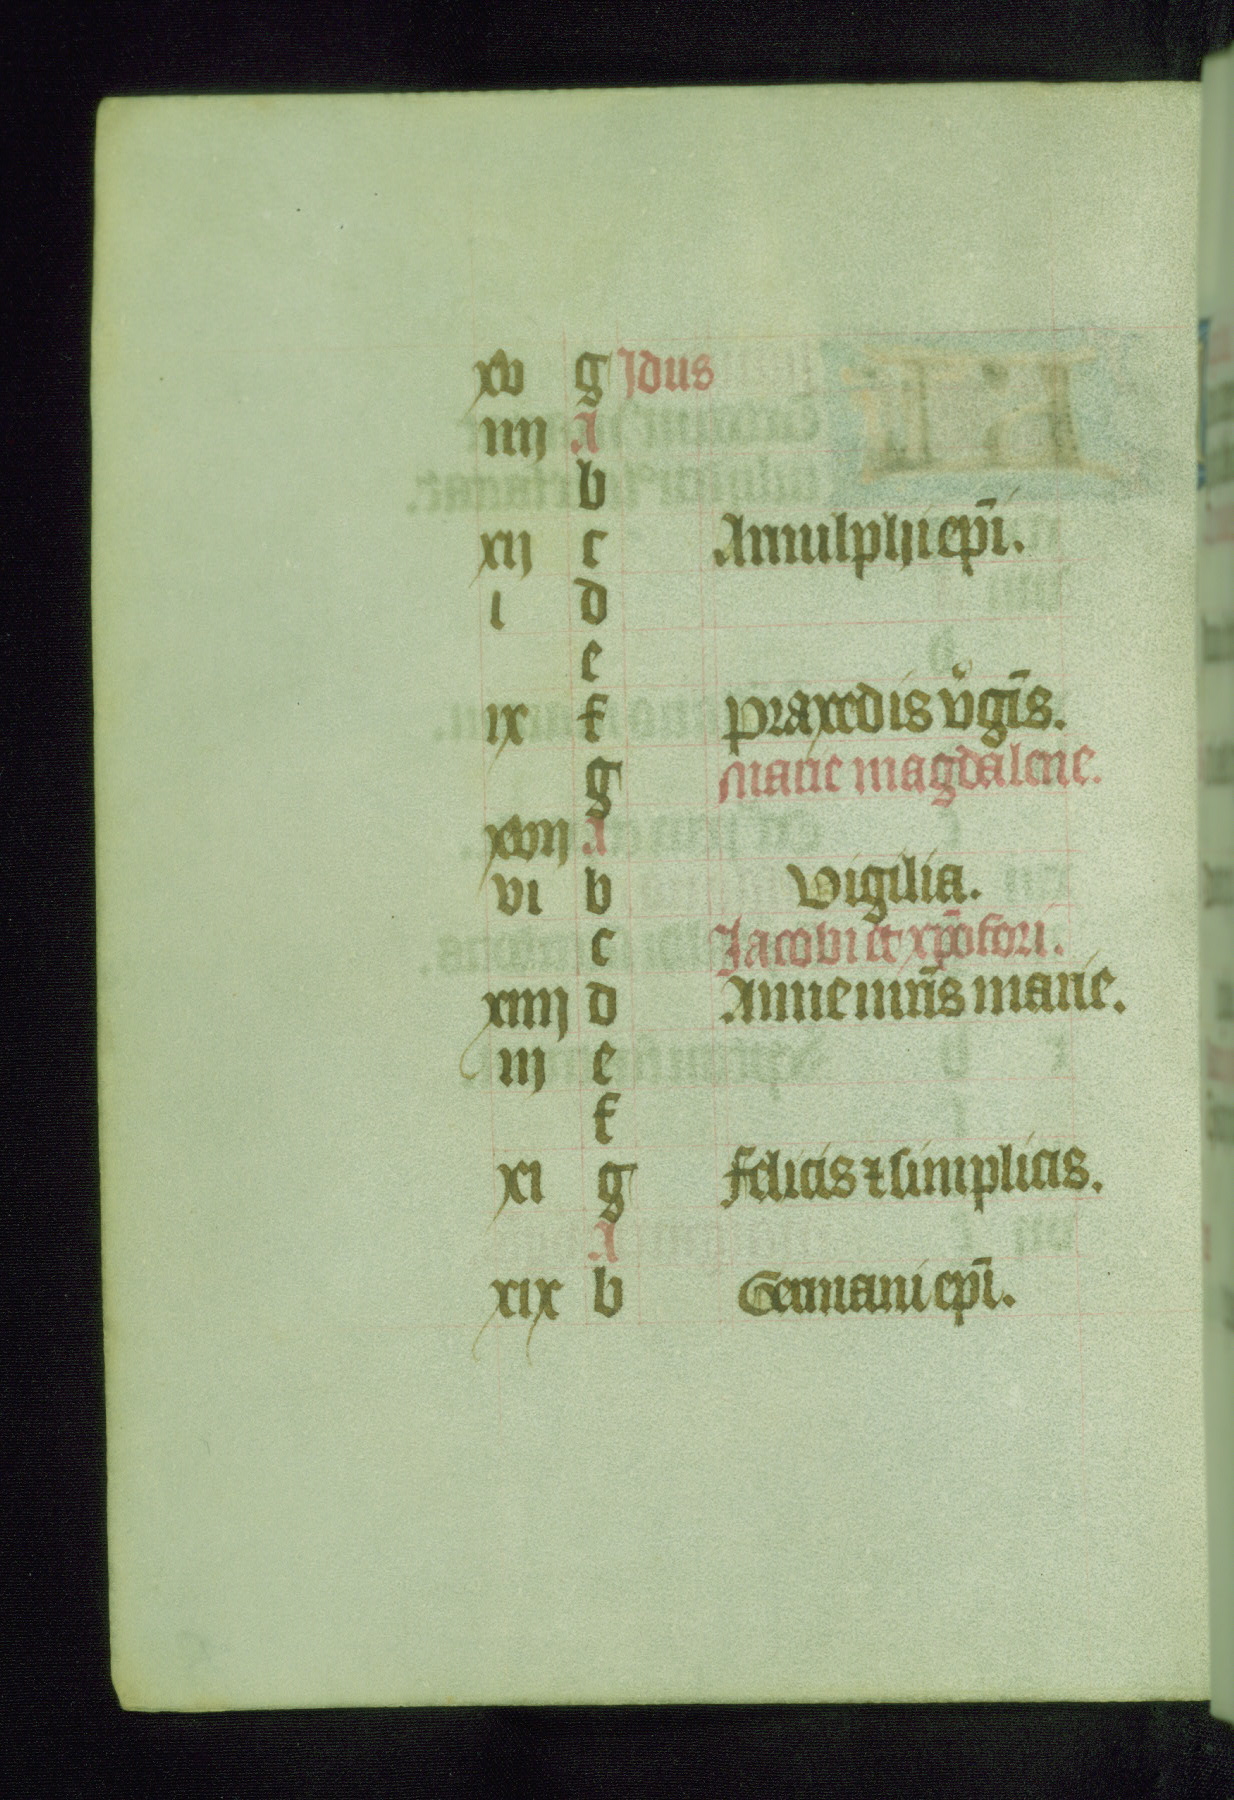 xv g Idus
iiij A
b
xij c Arnulphi ep̄i.
i d
e
ix f Praxedis v̊gis̄.
g Marie magdalene.
xvij A
vi b Vigilia.
c Jacobi et xp̄ofori.
xiiij d Anne mr̄is marie.
iij e
f
xi g Felicis ⁊ simplicis.
A
xix b Germani ep̄i.